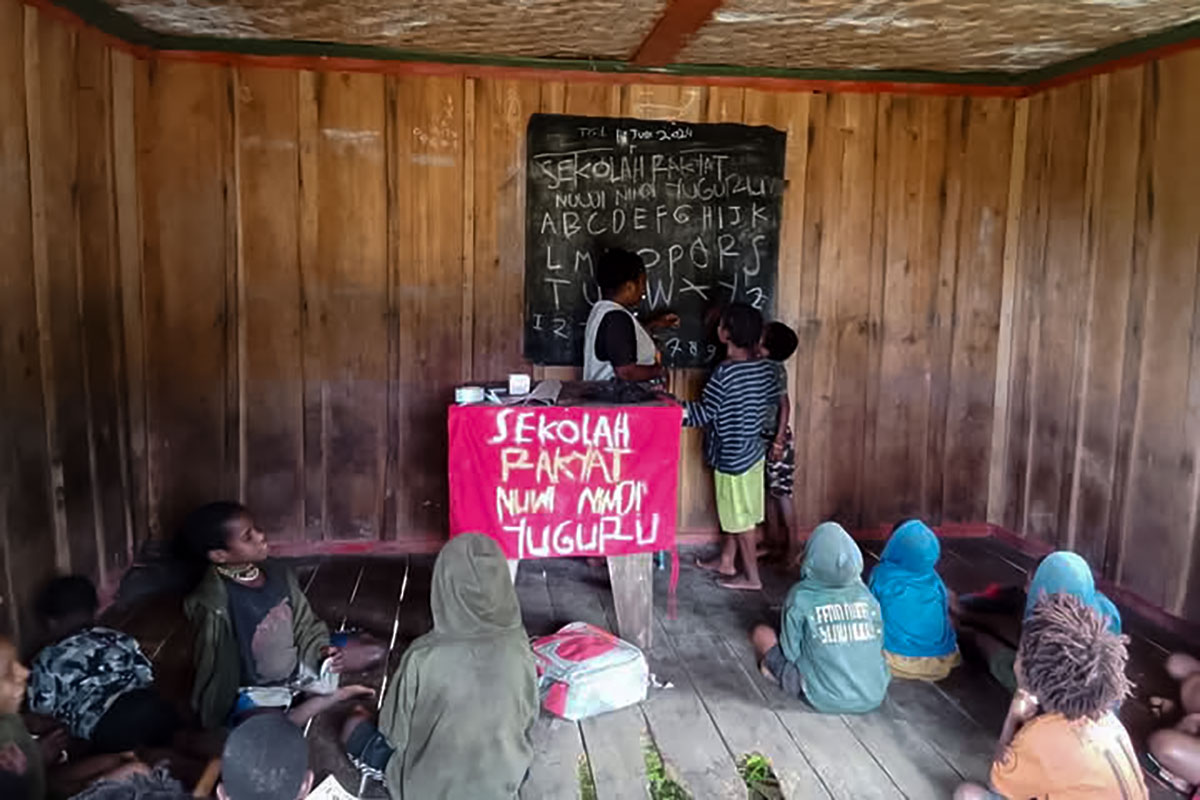 Juni 2024
SEKOLAH RAKYAT
NUWI NINDI YUGURU
ABCDEFGHIJK
L M O P Q R S
T U W X Y Z
1 2 7 8 9
SEKOLAH
RAKYAT
NUWI NINDI
YUGURU